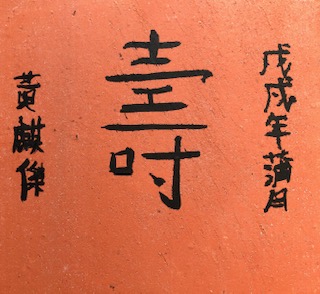 戊戌年蒲月
壽
黃麒傑